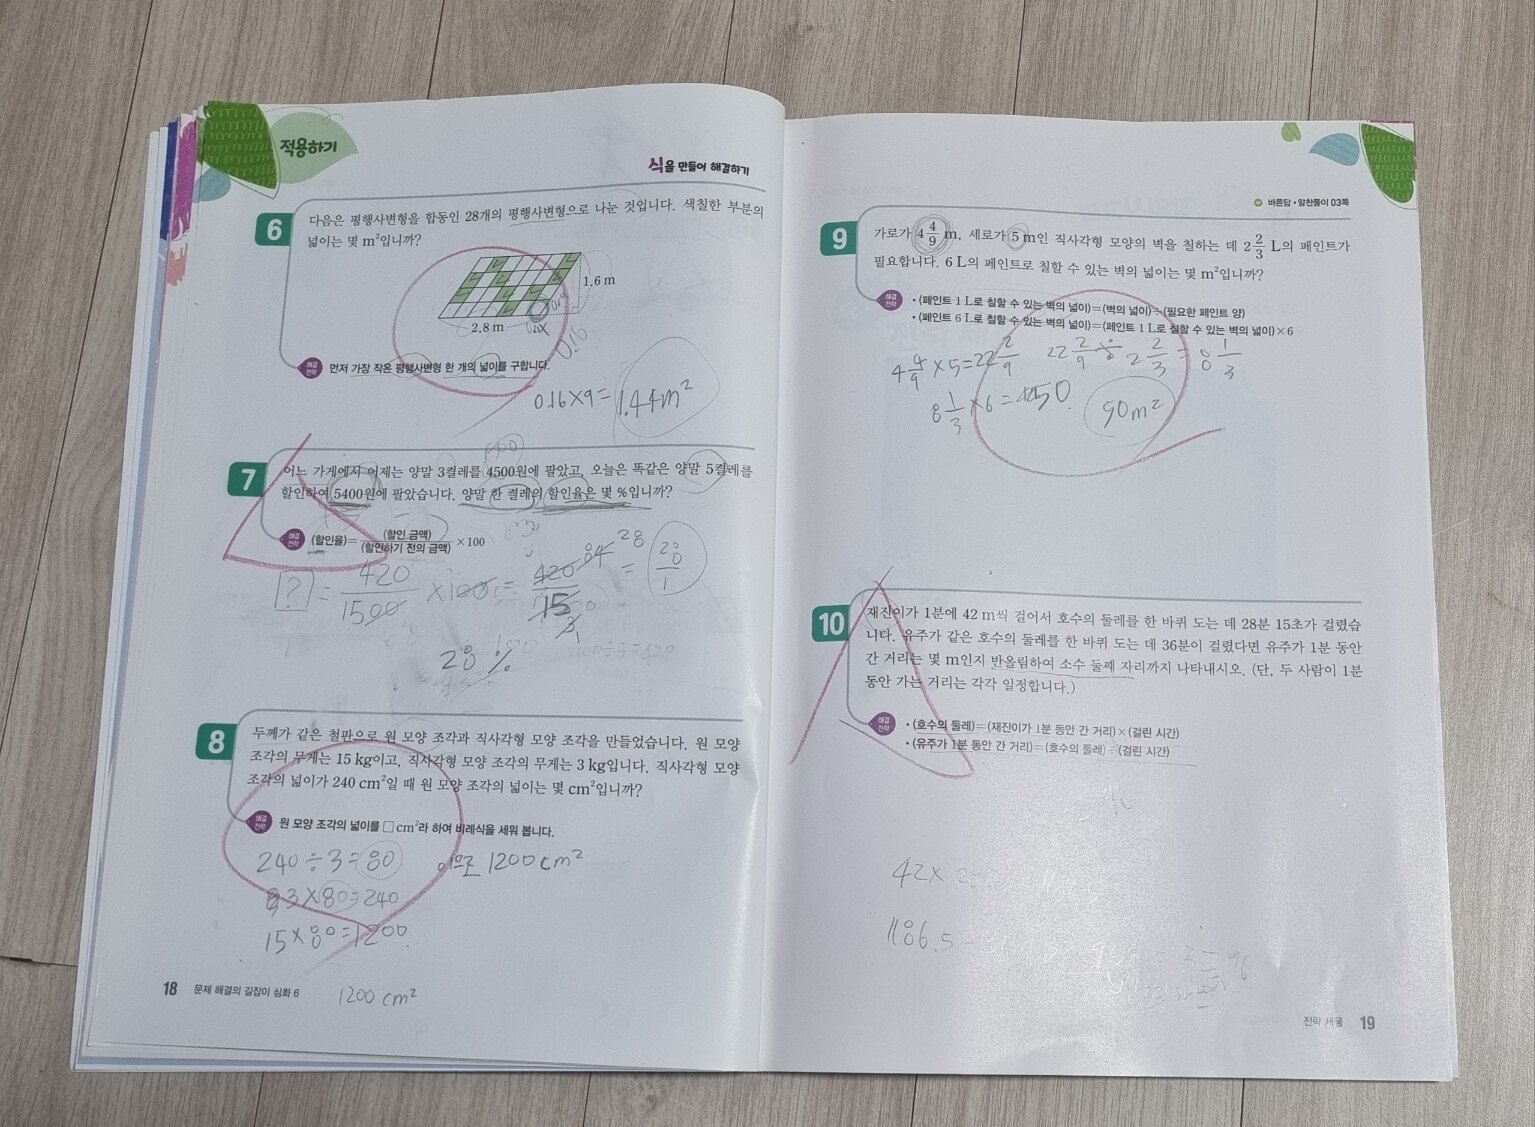 적용하기
식을 만들어 해결하기
6
다음은 평행사변형을 합동인 28개의 평행사변형으로 나눈 것입니다. 색칠한 부분의
넓이는 몇 m²입니까?
1.6 m
2.8 m
0.16
해결 전략
먼저 가장 작은 평행사변형 한 개의 넓이를 구합니다.
0.16×9=1.44m²
7
어느 가게에서 어제는 양말 3켤레를 4500원에 팔았고, 오늘은 똑같은 양말 5켤레를
할인하여 5400원에 팔았습니다. 양말 한 켤레의 할인율은 몇 %입니까?
해결 전략
(할인율)=(할인 금액)/(할인하기 전의 금액)×100
?=420/1500×100=420/15=28/1
28%
8
두께가 같은 철판으로 원 모양 조각과 직사각형 모양 조각을 만들었습니다. 원 모양
조각의 무게는 15 kg이고, 직사각형 모양 조각의 무게는 3 kg입니다. 직사각형 모양
조각의 넓이가 240 cm²일 때 원 모양 조각의 넓이는 몇 cm²입니까?
해결 전략
원 모양 조각의 넓이를 □ cm²라 하여 비례식을 세워 봅니다.
240÷3=80 이므로 1200cm²
3×80=240
15×80=1200
18 문제 해결의 길잡이 심화 6
1200 cm²
바른답 • 알찬풀이 03쪽
9
가로가 4 4/9 m, 세로가 5 m인 직사각형 모양의 벽을 칠하는 데 2 2/3 L의 페인트가
필요합니다. 6 L의 페인트로 칠할 수 있는 벽의 넓이는 몇 m²입니까?
해결 전략
• (페인트 1 L로 칠할 수 있는 벽의 넓이)=(벽의 넓이)÷(필요한 페인트 양)
• (페인트 6 L로 칠할 수 있는 벽의 넓이)=(페인트 1 L로 칠할 수 있는 벽의 넓이)×6
4 4/9×5=22 2/9 22 2/9÷2 2/3=8 1/3
8 1/3×6=50 50m²
10
재진이가 1분에 42 m씩 걸어서 호수의 둘레를 한 바퀴 도는 데 28분 15초가 걸렸습
니다. 유주가 같은 호수의 둘레를 한 바퀴 도는 데 36분이 걸렸다면 유주가 1분 동안
간 거리는 몇 m인지 반올림하여 소수 둘째 자리까지 나타내시오. (단, 두 사람이 1분
동안 가는 거리는 각각 일정합니다.)
해결 전략
• (호수의 둘레)=(재진이가 1분 동안 간 거리)×(걸린 시간)
• (유주가 1분 동안 간 거리)=(호수의 둘레)÷(걸린 시간)
42×
1186.5
전략 세움 19